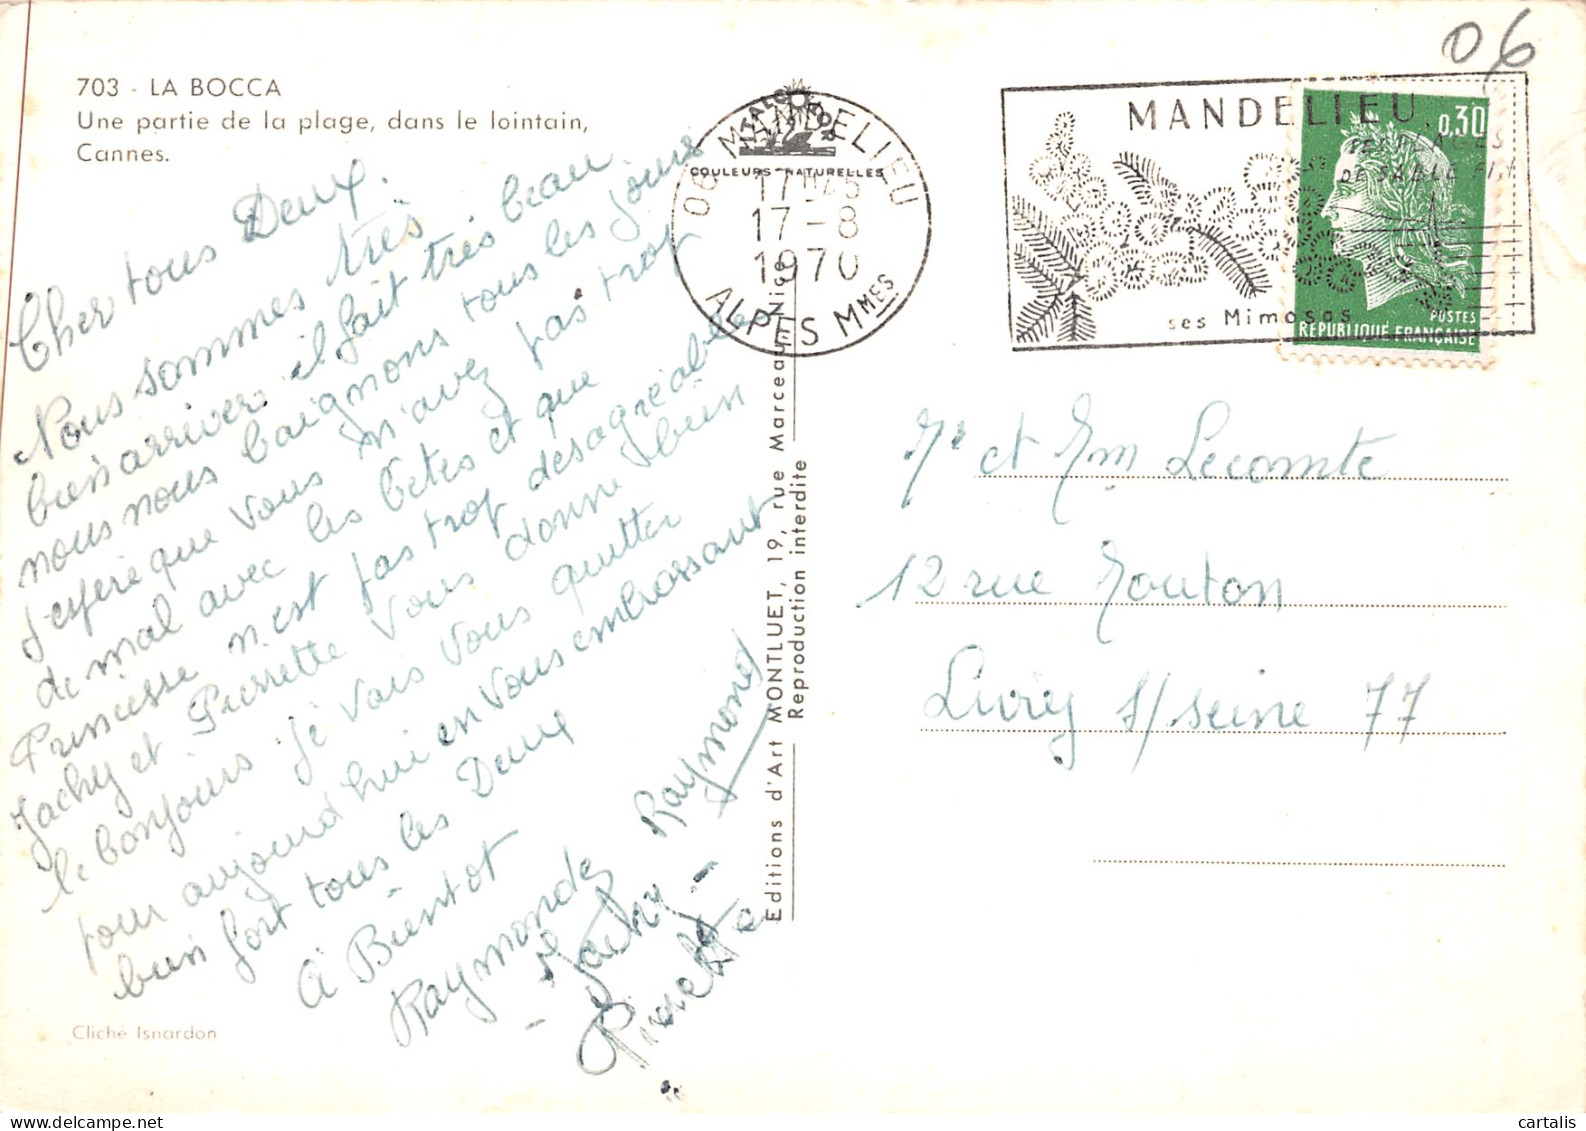 703 - LA BOCCA
Une partie de la plage, dans le lointain,
Cannes.
Cher tous Deux.
Nous sommes très
bien arriver il fait très beau
nous nous baignons tous les jours
J'espère que vous n'avez pas trop
de mal avec les bêtes et que
Princesse n'est pas trop désagréables
Jacky et Pierrette vous donne bien
le bonjours je vais vous quitter
pour aujourd'hui en vous embrassant
bien fort tous les Deux
A Bientot
Raymonde Raymond
- Jacky -
Pierrette
Cliché Isnardon
ITALCOLOR
COULEURS NATURELLES
06 MANDELIEU
17H45
17-8
1970
ALPES MMES
Editions d'Art MONTLUET, 19, rue Marceau, Nice
Reproduction interdite
06
MANDELIEU
SES PLAGES
DE SABLE FIN
ses Mimosas
0,30
POSTES
REPUBLIQUE FRANÇAISE
Mr et Mm Lecomte
12 rue
Livry s/seine 77
cartalis